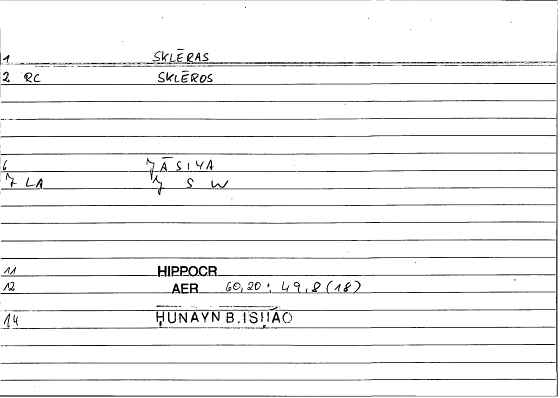 1 SKLĒRAS
2 RC SKLĒROS
6 ǦĀSIYA
7 LA Ǧ S W
11 HIPPOCR
12 AER 60,20 : 49,8 (18)
14 ḤUNAYN B.ISḤĀQ